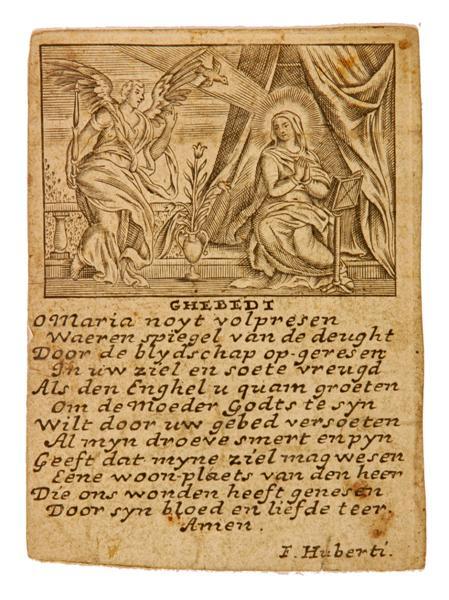 GHEBEDT
O Maria noyt volpresen
Waeren spiegel van de deught
Door de blydschap op-geresen
In uw ziel en soete vreugd
Als den Enghel u quam groeten
Om de Moeder Godts te syn
Wilt door uw gebed versoeten
Al myn droeve smert en pyn
Geeft dat myne ziel mag wesen
Eene woon-plaets van den heer
Die ons wonden heeft genesen
Door syn bloed en liefde teer.
Amen.
F. Huberti.